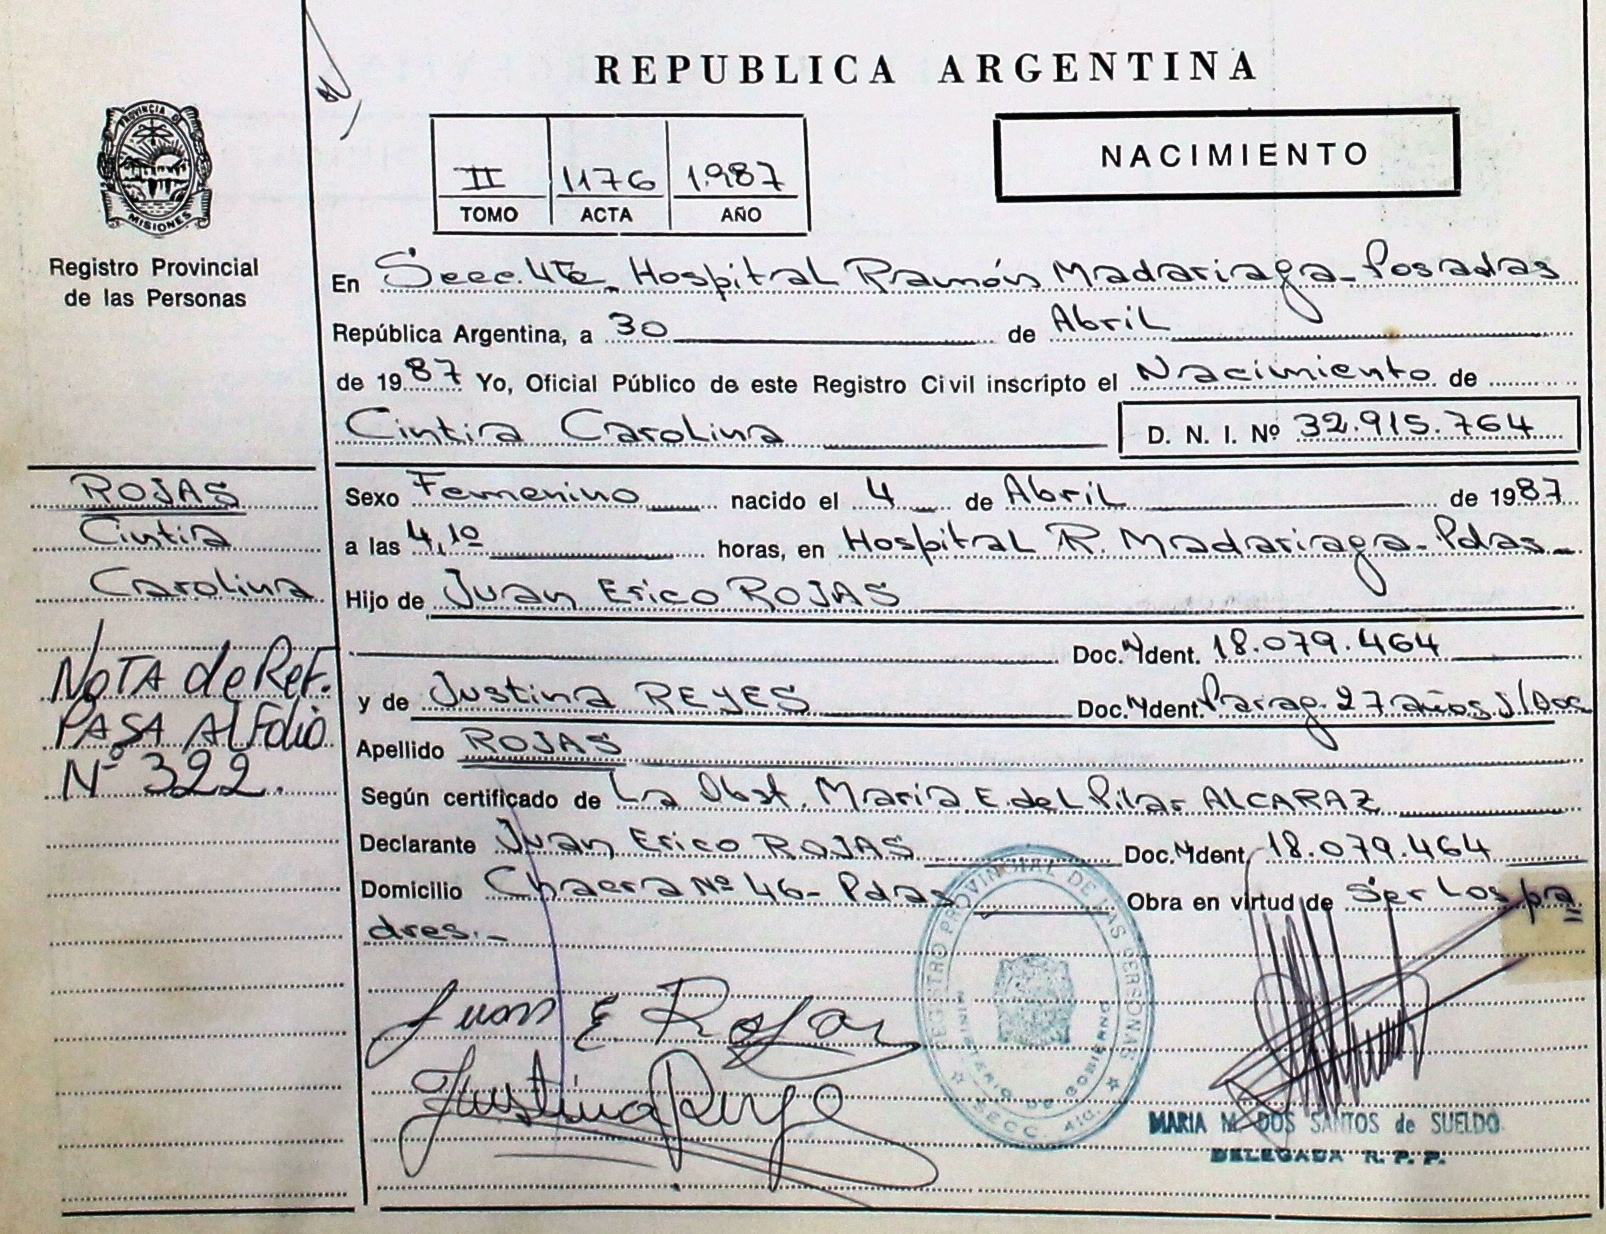 REPUBLICA ARGENTINA
PROVINCIA D
MISIONES
Registro Provincial
de las Personas
II 1176 1.987
TOMO ACTA AÑO
NACIMIENTO
En Secc. 4ta_ Hospital Ramón Madariaga_ Posadas
República Argentina, a 30 de Abril
de 1987 Yo, Oficial Público de este Registro Civil inscripto el Nacimiento de
Cintia Carolina D. N. I. Nº 32.915.764
Sexo Femenino nacido el 4 de Abril de 1987
a las 4,10 horas, en Hospital R. Madariaga_ Pdas_
Hijo de Juan Erico ROJAS
Doc. Ydent. 18.079.464
y de Justina REYES Doc. Ydent. Parag. 27 años s/Doc
Apellido ROJAS
Según certificado de La Obst. María E. del Pilar ALCARAZ
Declarante Juan Erico ROJAS Doc. Ydent. 18.079.464
Domicilio Chacra Nº 46- Pdas Obra en virtud de Ser Los pa
dres._
ROJAS
Cintia
Carolina
NOTA de Ref.
PASA Al Folio
Nº 322.
Juan E Rojas
Justina Reyes
REGISTRO PROVINCIAL DE LAS PERSONAS
MINISTERIO DE GOBIERNO
SECC. 4ta.
MARIA M. DOS SANTOS de SUELDO
DELEGADA R. P. P.